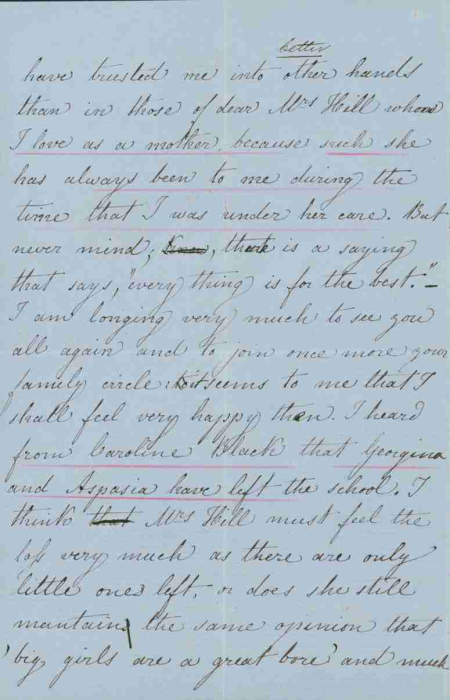 better
have trusted me into other hands
than in those of dear Mrs Hill whom
I love as a mother, because such she
has always been to me during the
time that I was under her care. But
never mind; , there is a saying
that says, "every thing is for the best."—
I am longing very much to see you
all again and to join once more your
family circle: it seems to me that I
shall feel very happy then. I heard
from Caroline Black that Georgina
and Aspasia have left the school. I
think that Mrs Hill must feel the
loss very much as there are only
little ones left, or does she still
mantain the same opinion that
'big girls are a great bore' and much